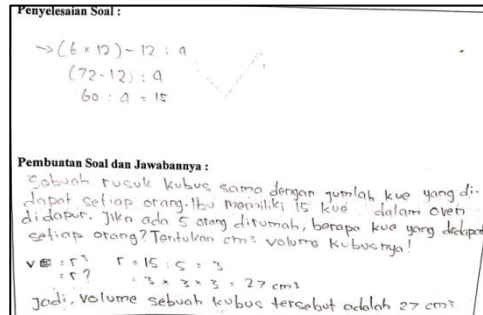 Penyelesaian Soal :
→ (6 × 12) - 12 : 4
(72 - 12) : 4
60 : 4 = 15
Pembuatan Soal dan Jawabannya :
Sebuah rusuk kubus sama dengan jumlah kue yang di-
dapat setiap orang. Ibu memiliki 15 kue dalam oven
didapur. Jika ada 5 orang dirumah, berapa kue yang didapat
setiap orang? Tentukan cm³ volume kubusnya!
V = r³ r = 15 : 5 = 3
= r? = 3 × 3 × 3 = 27 cm³
Jadi, volume sebuah kubus tersebut adalah 27 cm³